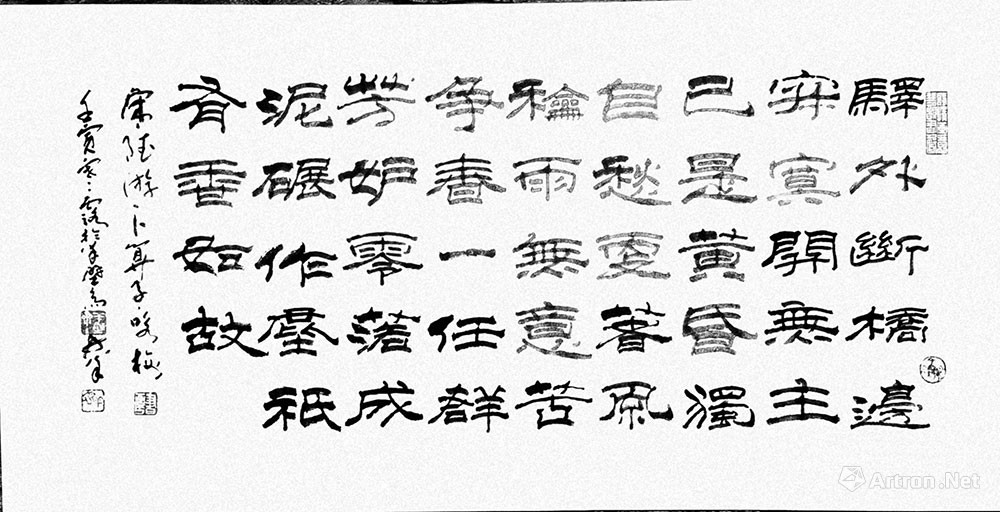 驛外斷橋邊
寂寞開無主
已是黃昏獨
自愁更著風
和雨無意苦
爭春一任群
芳妒零落成
泥碾作塵祇
有香如故
宋陸游卜算子咏梅
壬寅寒露於
Artron.Net